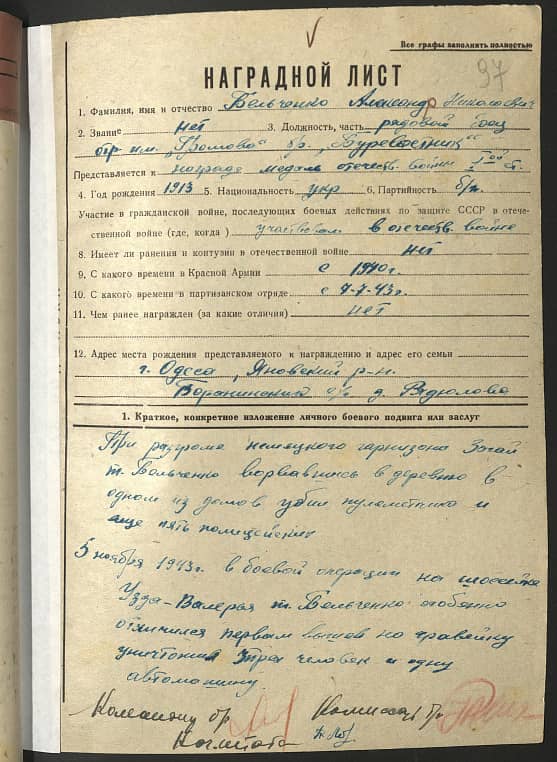 Все графы заполнять полностью
97
НАГРАДНОЙ ЛИСТ
1. Фамилия, имя и отчество Бельченко Александр Николаевич
2. Звание нет 3. Должность, часть рядовой боец
отр им. "Громова" бр. "Буревестник"
Представляется к награде медаль отечеств. войны I ст.
4. Год рождения 1913 5. Национальность укр 6. Партийность б/п.
Участие в гражданской войне, последующих боевых действиях по защите СССР в отече-
ственной войне (где, когда) участвовал в отечеств. войне
8. Имеет ли ранения и контузии в отечественной войне нет
9. С какого времени в Красной Армии с 1940г.
10. С какого времени в партизанском отряде с 7-7-43г.
11. Чем ранее награжден (за какие отличия) нет
12. Адрес места рождения представляемого к награждению и адрес его семьи
г. Одесса, Яновский р-н.
с/с д.
1. Краткое, конкретное изложение личного боевого подвига или заслуг
При разгроме немецкого гарнизона
т. Бельченко ворвавшись в деревню в
одном из домов убил пулеметчика и
еще пять полицейских
5 ноября 1943г. в боевой операции на шоссейке
Узда-Валерья т. Бельченко особенно
отличился первым вышел на гравейку
уничтожил трех человек и одну
автомашину
Командир бр. Комиссар бр.